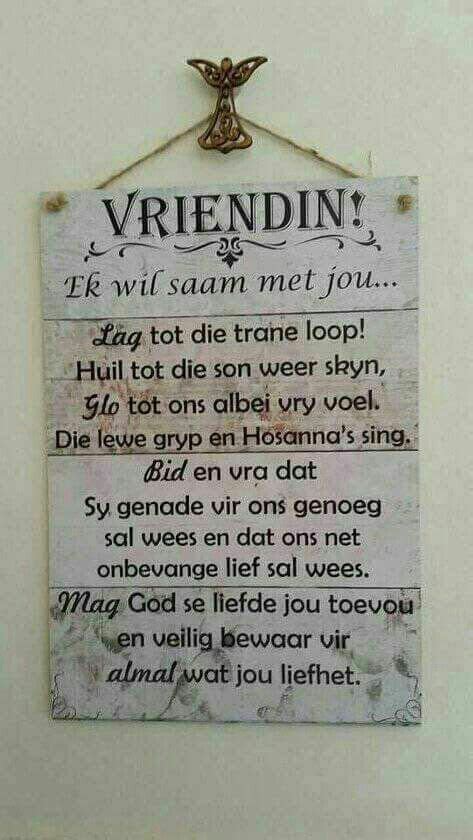 VRIENDIN!
Ek wil saam met jou...
Lag tot die trane loop!
Huil tot die son weer skyn,
Glo tot ons albei vry voel.
Die lewe gryp en Hosanna's sing.
Bid en vra dat
Sy genade vir ons genoeg
sal wees en dat ons net
onbevange lief sal wees.
Mag God se liefde jou toevou
en veilig bewaar vir
almal wat jou liefhet.